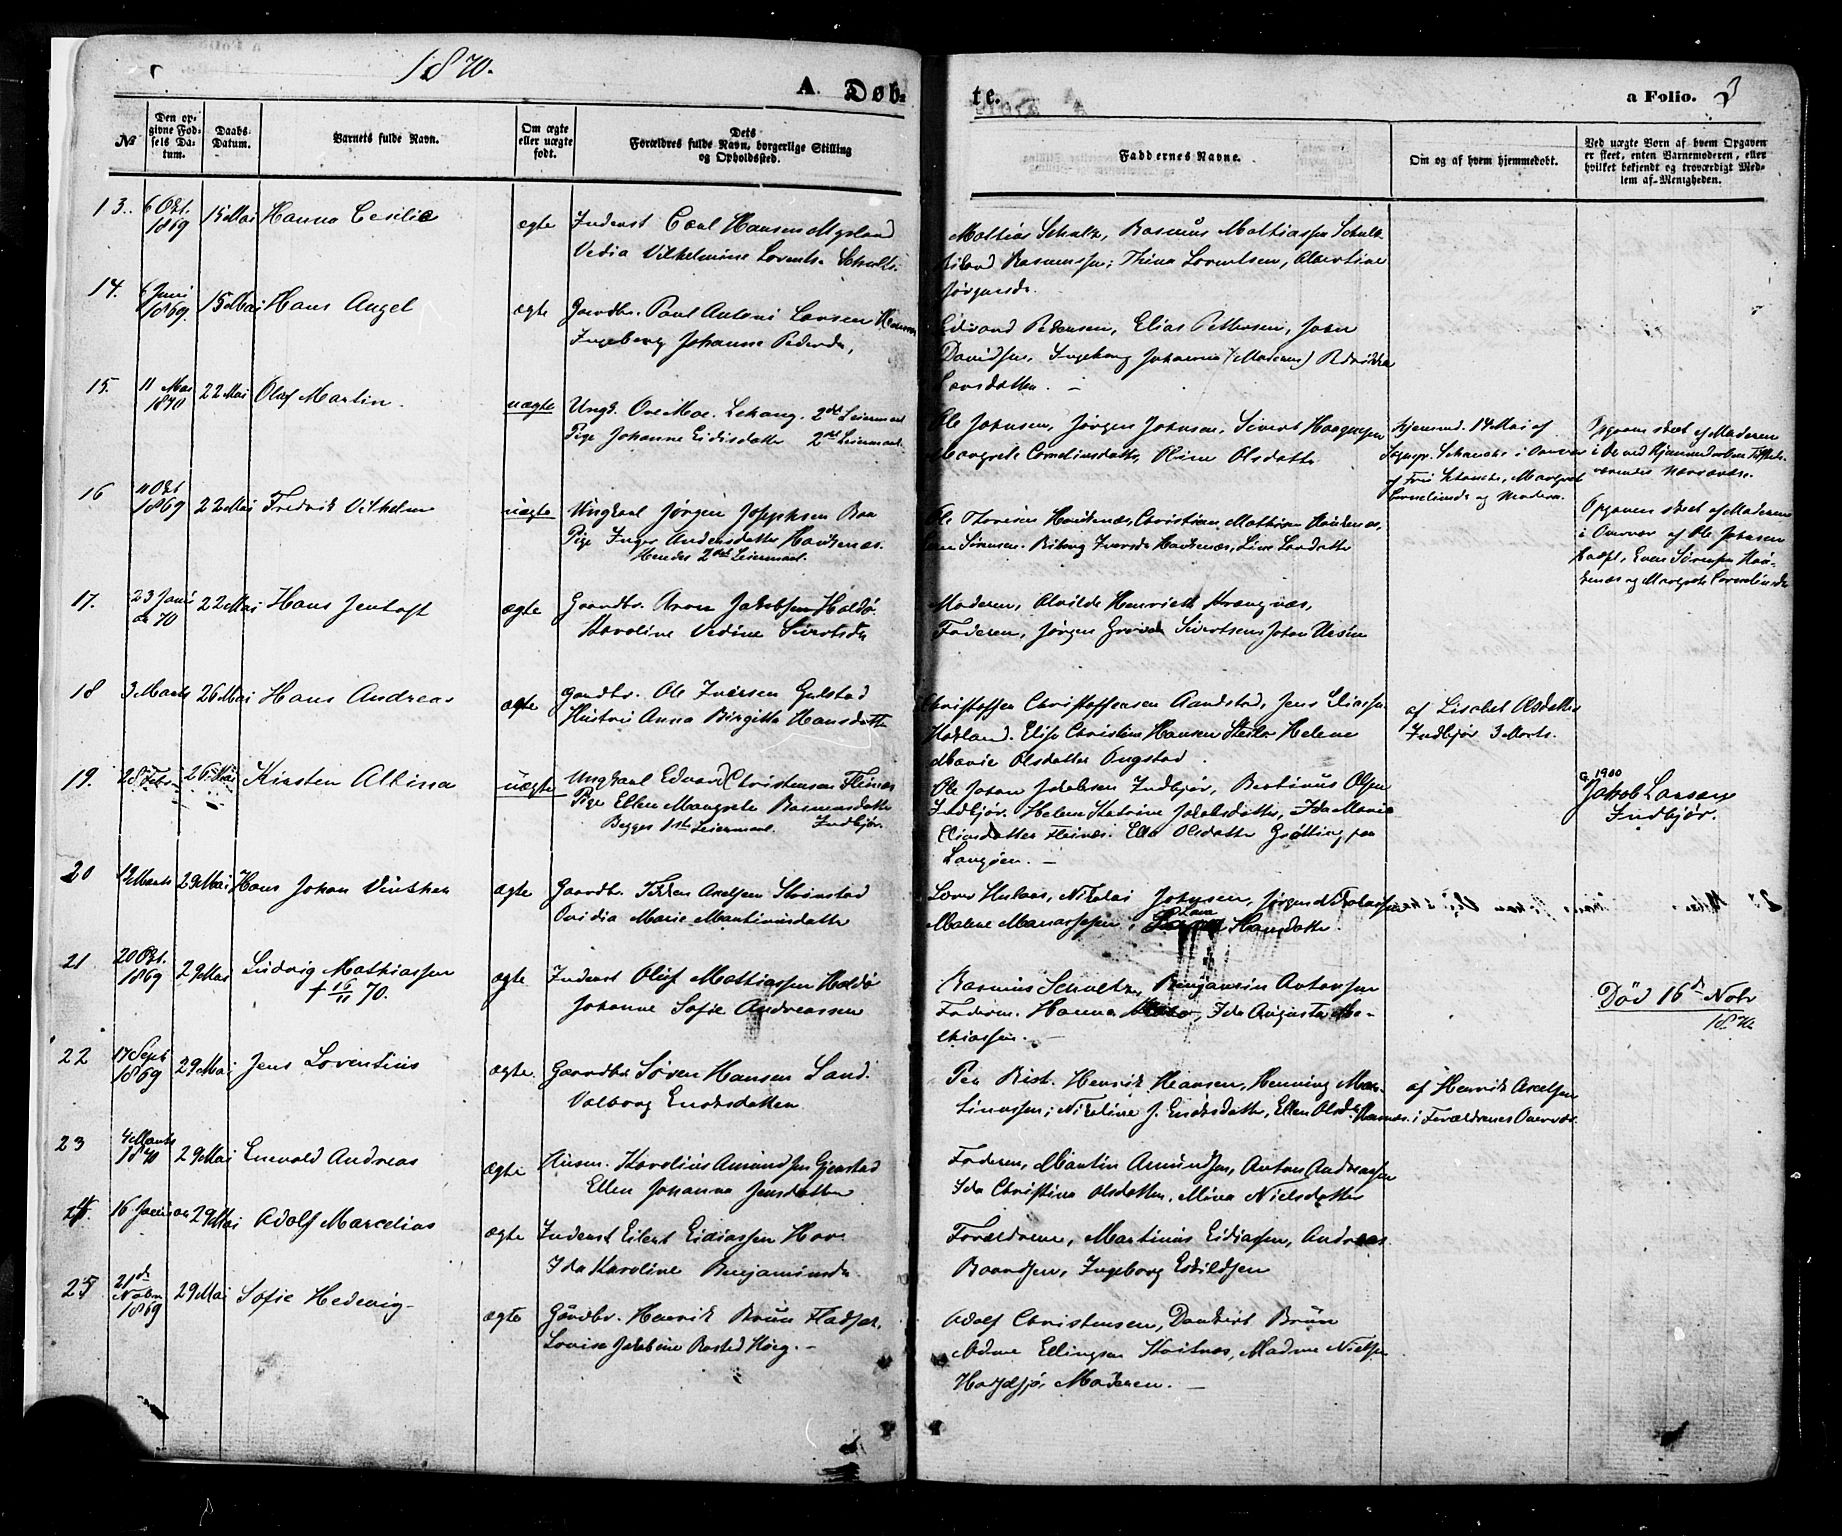 1870.
A. Døb-
te.
a Folio. 3
№
Den op-
givne Fød-
sels Da-
tum.
Daabs-
Datum.
Barnets fulde Navn.
Om ægte
eller uægte
født.
Dets
Forældres fulde Navn, borgerlige Stilling
og Opholdssted.
Faddernes Navne.
Om og af hvem hjemmedøbt.
Ved uægte Børn af hvem Opgaven
er skeet, enten Barnemoderen, eller
hvilket bekjendt og troværdigt Med-
lem af Menigheden.
13. 6 Okt. 1869 15 Mai Hanna Cesilie ægte Inderst Carl Hansen Myrland
Vedia Vilhelmine Lorents. Schults.
Mathias Schultz, Rasmus Mathiassen Schultz
Rasmussen; Thina Lorentsen, Albertine
Jørgensdr.
14. 1869 15 Mai Hans Angel ægte Gaardbr. Paul Antoni Larsen
Ingeborg Johanne Pedersdr.
Edvard Pedersen, Elias Pettersen, John
Davidsen, Ingeborg Johanna (Moderen)
Larsdatter. –
15. 11 Mai 1870 22 Mai Oluf Martin. uægte Ungk. Ove Moe. Lekang. 2det Leiermaal
Pige Johanne Eidisdatter 2det Leiermaal.
Ole Johnsen, Jørgen Johnsen, Sivert Haagensen
Margrete Corneliusdatter, Oline Olsdatter
Hjemmed. 14 Mai af
Sognepr. Schanche i Overvær
af Fru Schanche, Margrete
Corneliusdr og Moderen.
Opgaven skeet af Moderen
i de ved Hjemmedaaben Tilstede-
værendes Nærværelse.
16 11 Okt 1869 22 Mai Fredrik Vilhelm uægte Ungkarl Jørgen Josephsen Boe
Pige Inger Andersdatter Haukenæs.
Hendes 2det Leiermaal.
Ole Thoresen Haukenæs, Christian Mathisen Haukenæs,
Sørensen. Iversdr Haukenæs, Line Larsdatter
Opgaven skeet af Moderen
i Overvær af Ole Johnsen
Even Sørensen Hau-
kenæs og Margrete Corneliusdr
17. 23 Janu ar 70 22 Mai Hans Jentoft ægte Gaardbr. Aron Jakobsen Holdø
Karoline Vedine Sivertsdr
Moderen, Alvilde Henriette Strengnæs,
Faderen, Jørgen Grøvde Sivertsen, Johan
18 3 Marts 26 Mai Hans Andreas ægte Gaardbr. Ole Iversen Gulstad
Hustru Anna Birgitte Hansdatter
Christoffer Christoffersen Aandstad, Jens Eliassen
Elise Christine Hansen Helene
Marie Olsdatter Ongstad.
af Lisebet Olsdatter
Indbjør 3 Marts.
19. 28 Febr 26 Mai Kirsten Albissa uægte Ungkarl Edvard Christensen Fleines
Pige Ellen Margrete Rasmusdatter
Begges 1ste Leiermaal. Indbjør.
Ole Johan Jakobsen Indbjør, Bertinus Olsen
Indbjør. Helene Katrine Jakobsdatter, Ida Marie
Eliasdatter Fleines. Olsdatter Grøtting paa
Langøen. –
1900
Jakob Larsen
Indbjør.
20 19 Marts 29 Mai Hans Johan Vinther ægte Gaardbr Axelsen Strømstad
Ovidia Marie Martinusdatter
Nikolai Johnsen, Jørgen Nikolaisen
Malene Manassesen, Lava Hansdatter.
21 20 Okt. 1869 29 Mai Ludvig Mathiassen
† 16/11 70.
ægte Inderst Oluf Mathiassen Holdø
Johanne Sofie Andreassen
Rasmus Schultz, Benjamin Antonsen
Faderen. Hanna Ida Augusta Ma-
thiassen. –
Død 16de Nobr
1870
22 17 Sept 1869 29 Mai Jens Lorentius ægte. Gaardbr Søren Hansen Sand.
Valborg Enoksdatter
Per Rist. Henrik Hansen, Henning Mar-
tinussen; Nikoline J. Enoksdatter, Ellen Olsdr
af Henrik Axelsen
i Forældrenes Overvær.
23 4 Marts 1870 29 Mai Enevold Andreas ægte Husm. Karolius Amundsen Gjerstad
Ellen Johanna Jensdatter
Faderen, Martin Amundsen, Anton Andreassen
Ida Christina Olsdatter, Mina Nielsdatter
24. 16 Januar 29 Mai Adolf Marcelius ægte Inderst Eilert Eidissen Hov
Ida Karoline Benjaminsdr
Forældrene, Martinus Eidissen, Andreas
Baardsen, Ingeborg Eskildsen
25 21de Nobr 1869 29 Mai Sofie Hedevig ægte Gårdbr. Henrik Bruun Hadsel.
Lovise Jakobine Rosted Høeg. –
Adolf Christensen, Dankert Bruun
Madme Ellingsen Madme Nielsen
Moderen. –